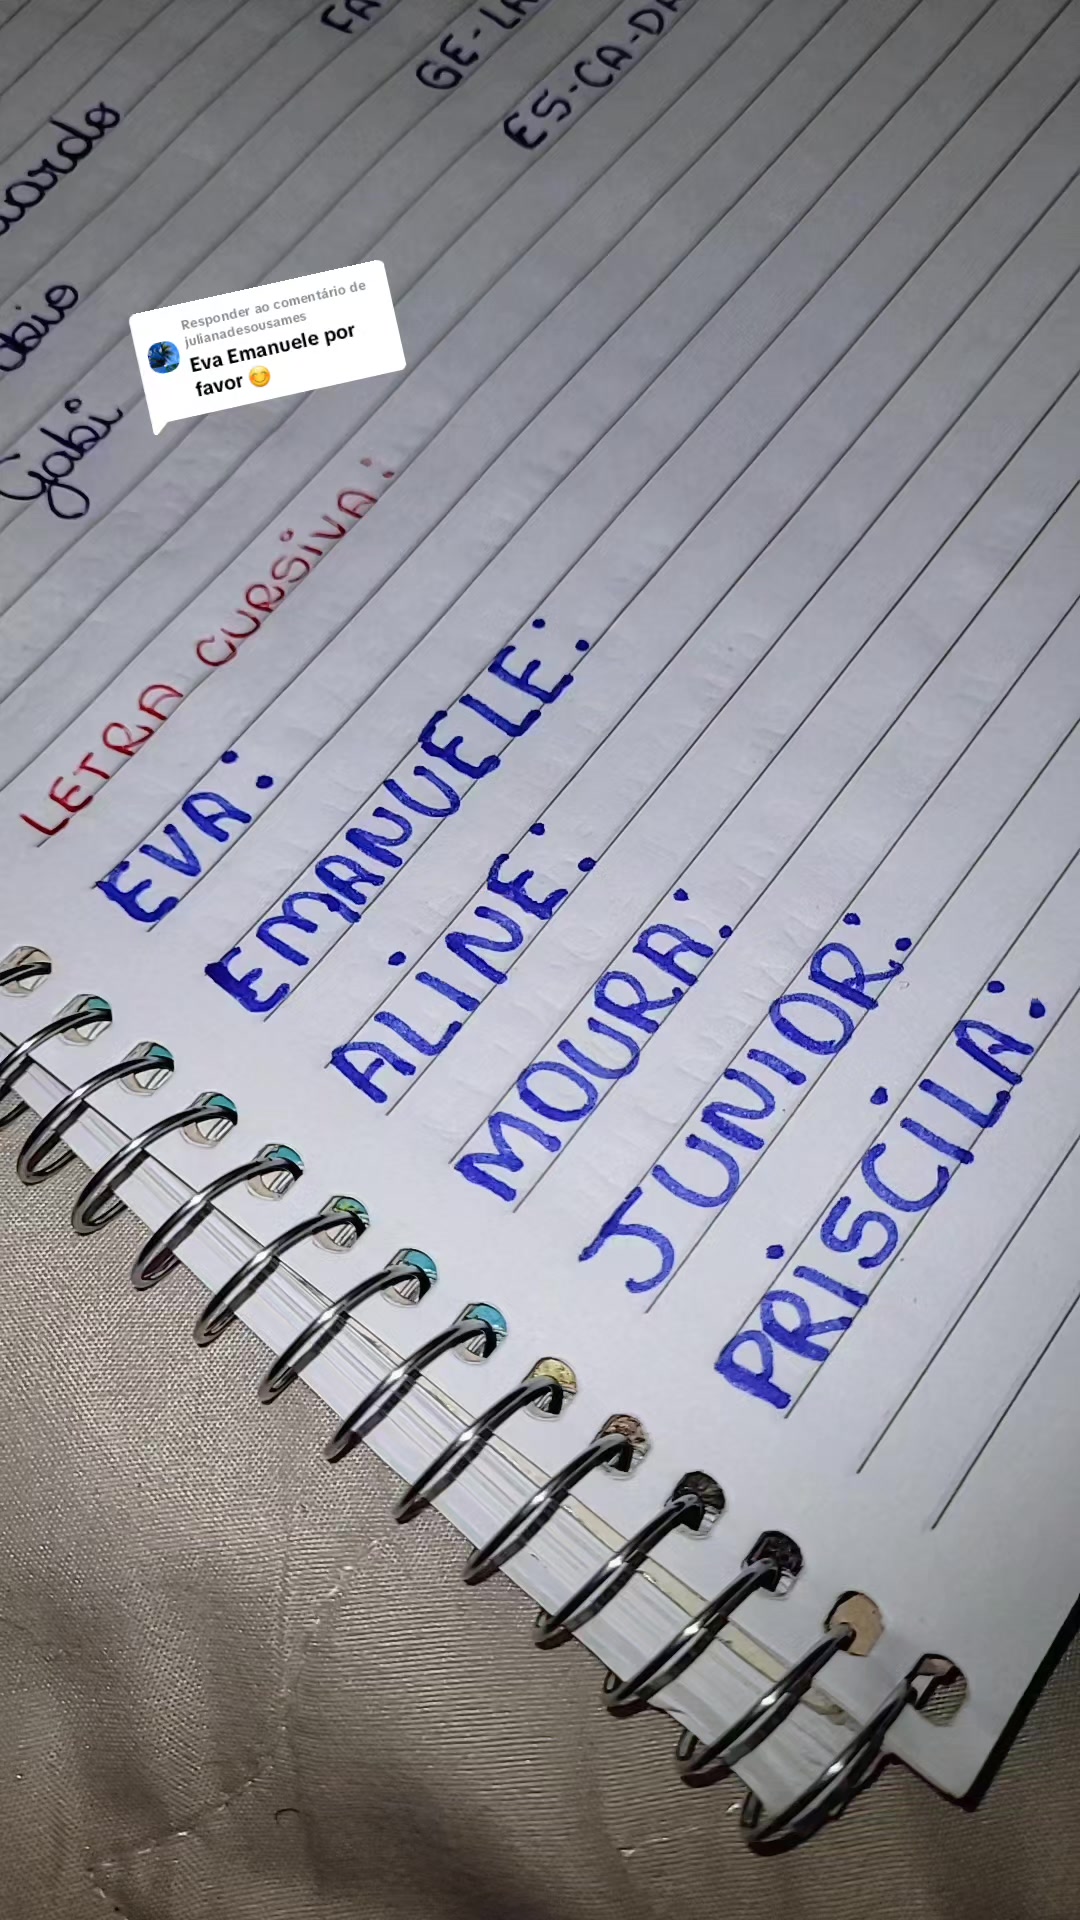 GE-LA
ES-CA-DA
Gabi
Responder ao comentário de
julianadesousames
Eva Emanuele por
favor 😊
LETRA CURSIVA:
EVA:
EMANUELE:
ALINE:
MOURA:
JUNIOR:
PRISCILA: